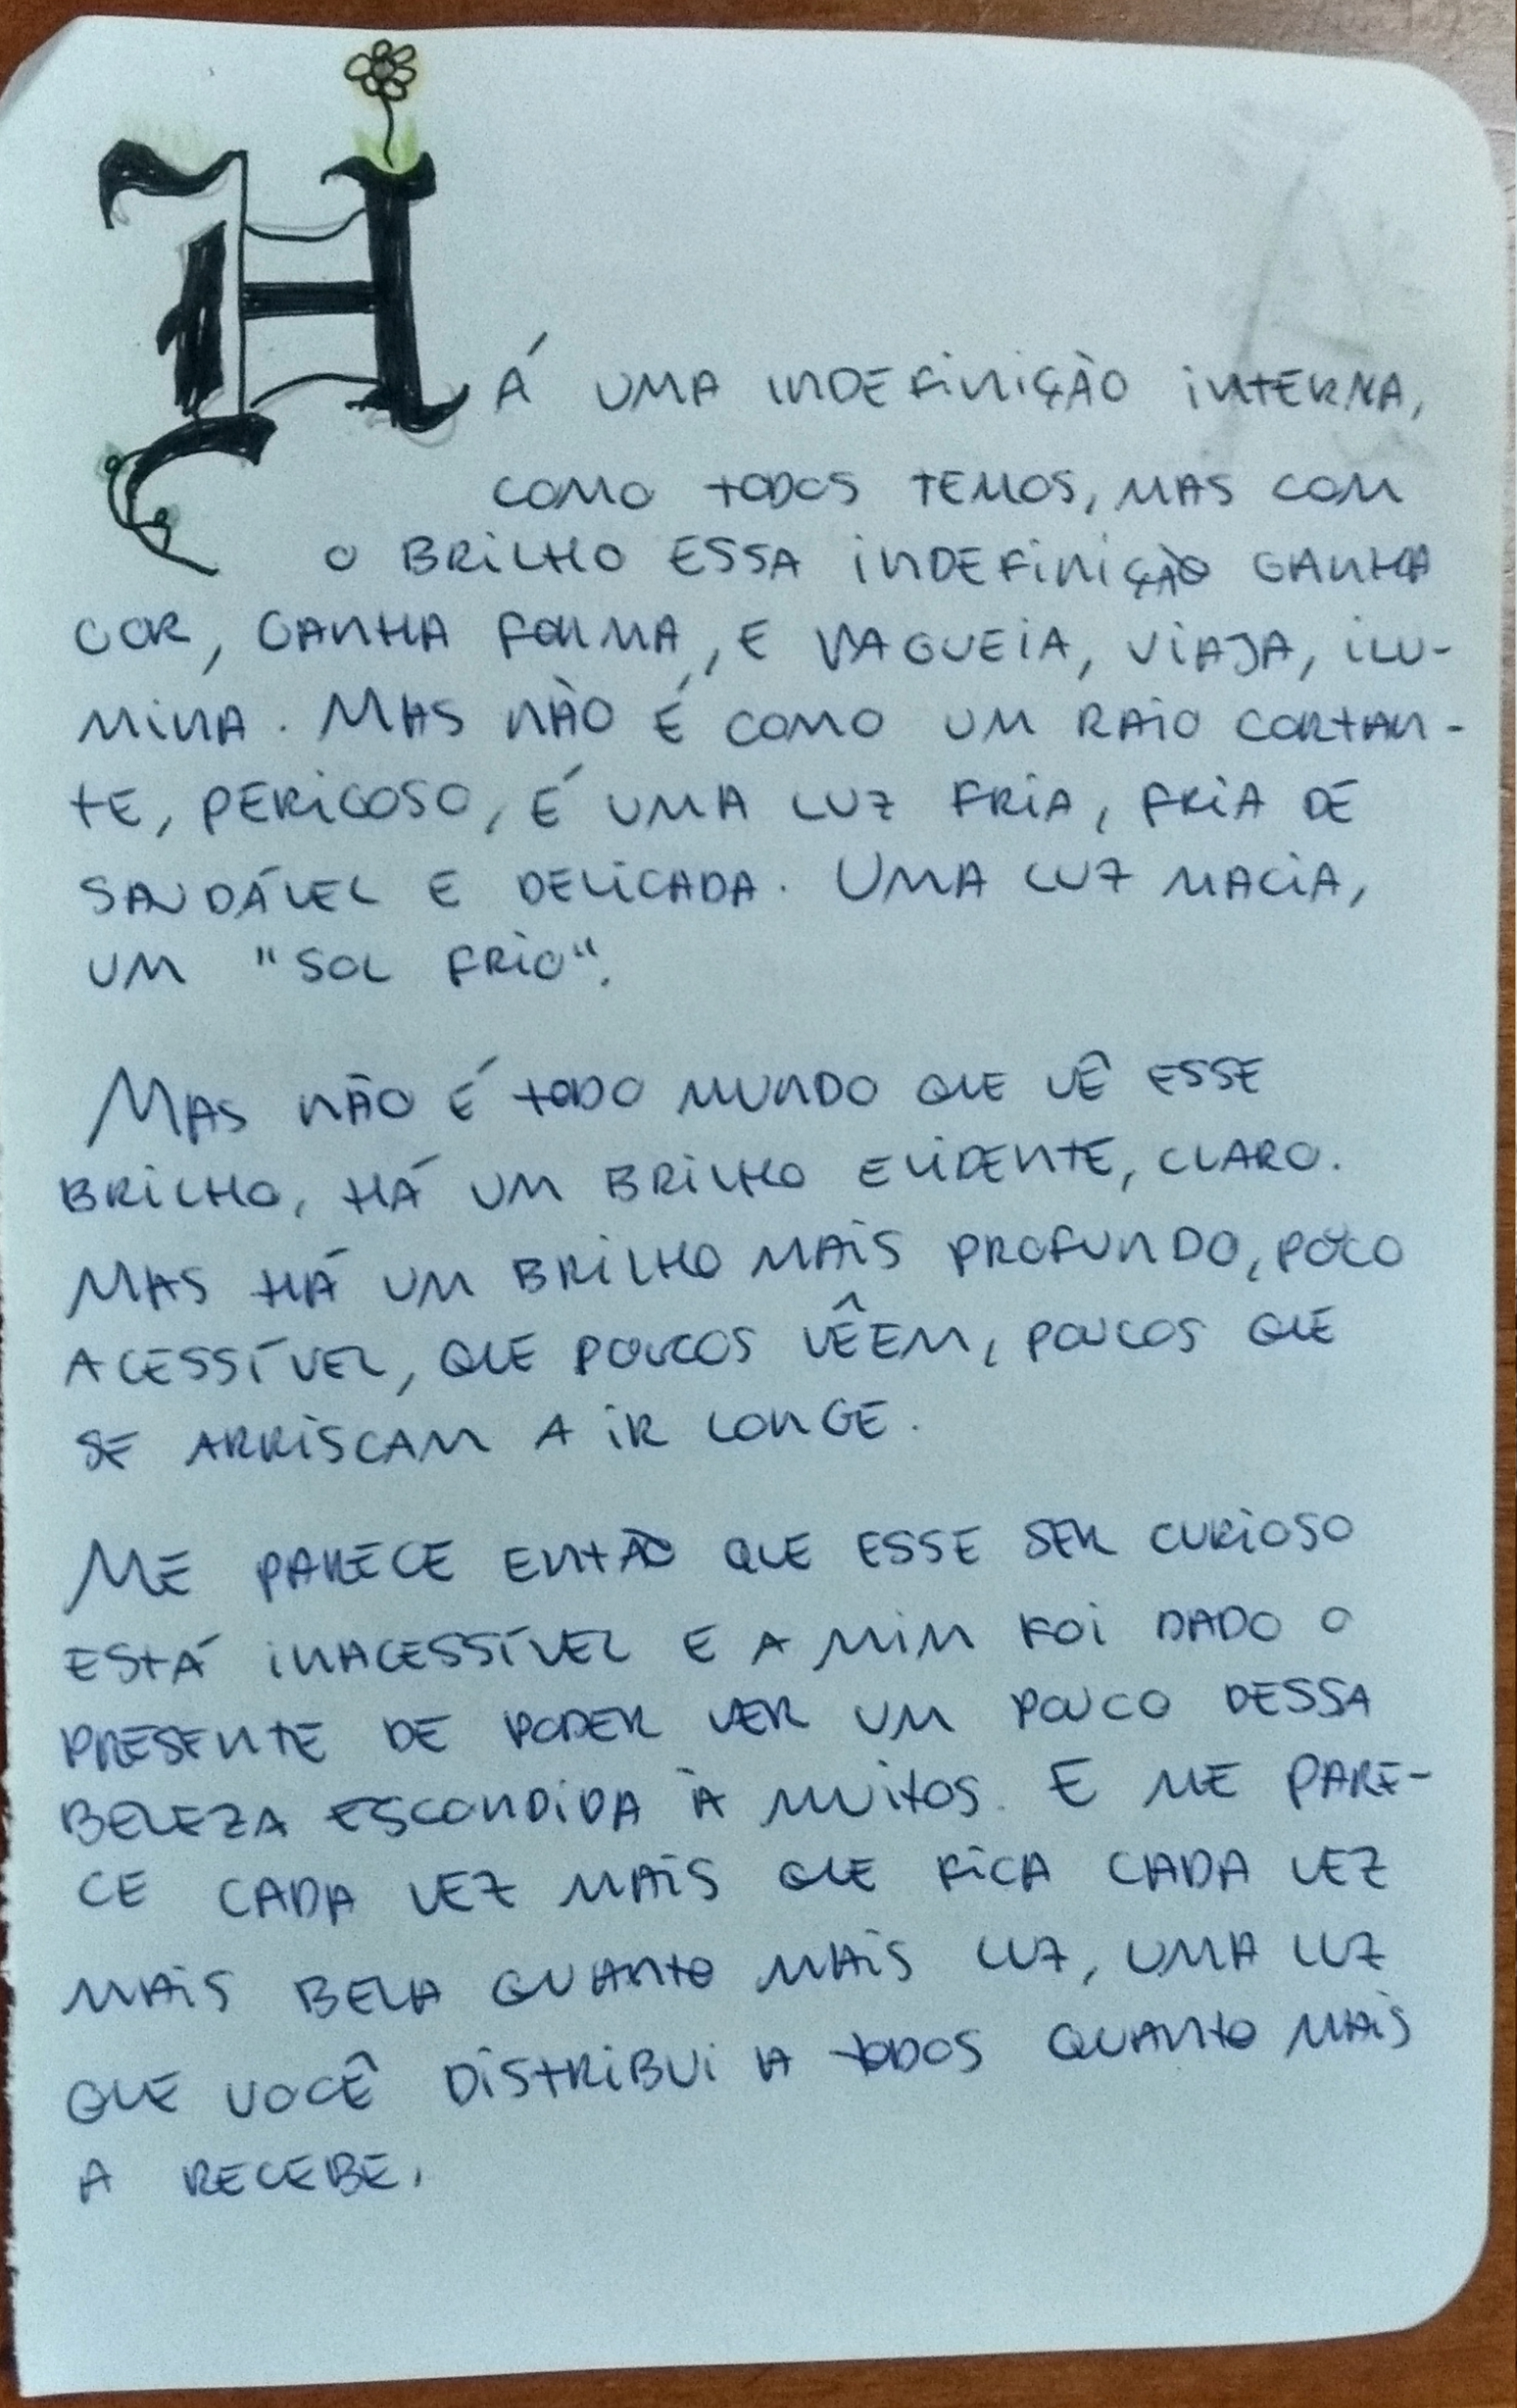 HÁ UMA INDEFINIÇÃO INTERNA,
COMO TODOS TEMOS, MAS COM
O BRILHO ESSA INDEFINIÇÃO GANHA
COR, GANHA FORMA, E VAGUEIA, VIAJA, ILU-
MINA. MAS NÃO É COMO UM RAIO CORTAN-
TE, PERIGOSO, É UMA LUZ FRIA, FRIA DE
SAUDÁVEL E DELICADA. UMA LUZ MACIA,
UM "SOL FRIO".
MAS NÃO É TODO MUNDO QUE VÊ ESSE
BRILHO, HÁ UM BRILHO EVIDENTE, CLARO.
MAS HÁ UM BRILHO MAIS PROFUNDO, POUCO
ACESSÍVEL, QUE POUCOS VÊEM, POUCOS QUE
SE ARRISCAM A IR LONGE.
ME PARECE ENTÃO QUE ESSE SER CURIOSO
ESTÁ INACESSÍVEL E A MIM FOI DADO O
PRESENTE DE PODER VER UM POUCO DESSA
BELEZA ESCONDIDA À MUITOS. E ME PARE-
CE CADA VEZ MAIS QUE FICA CADA VEZ
MAIS BELA QUANTO MAIS LUZ, UMA LUZ
QUE VOCÊ DISTRIBUI A TODOS QUANTO MAIS
A RECEBE.